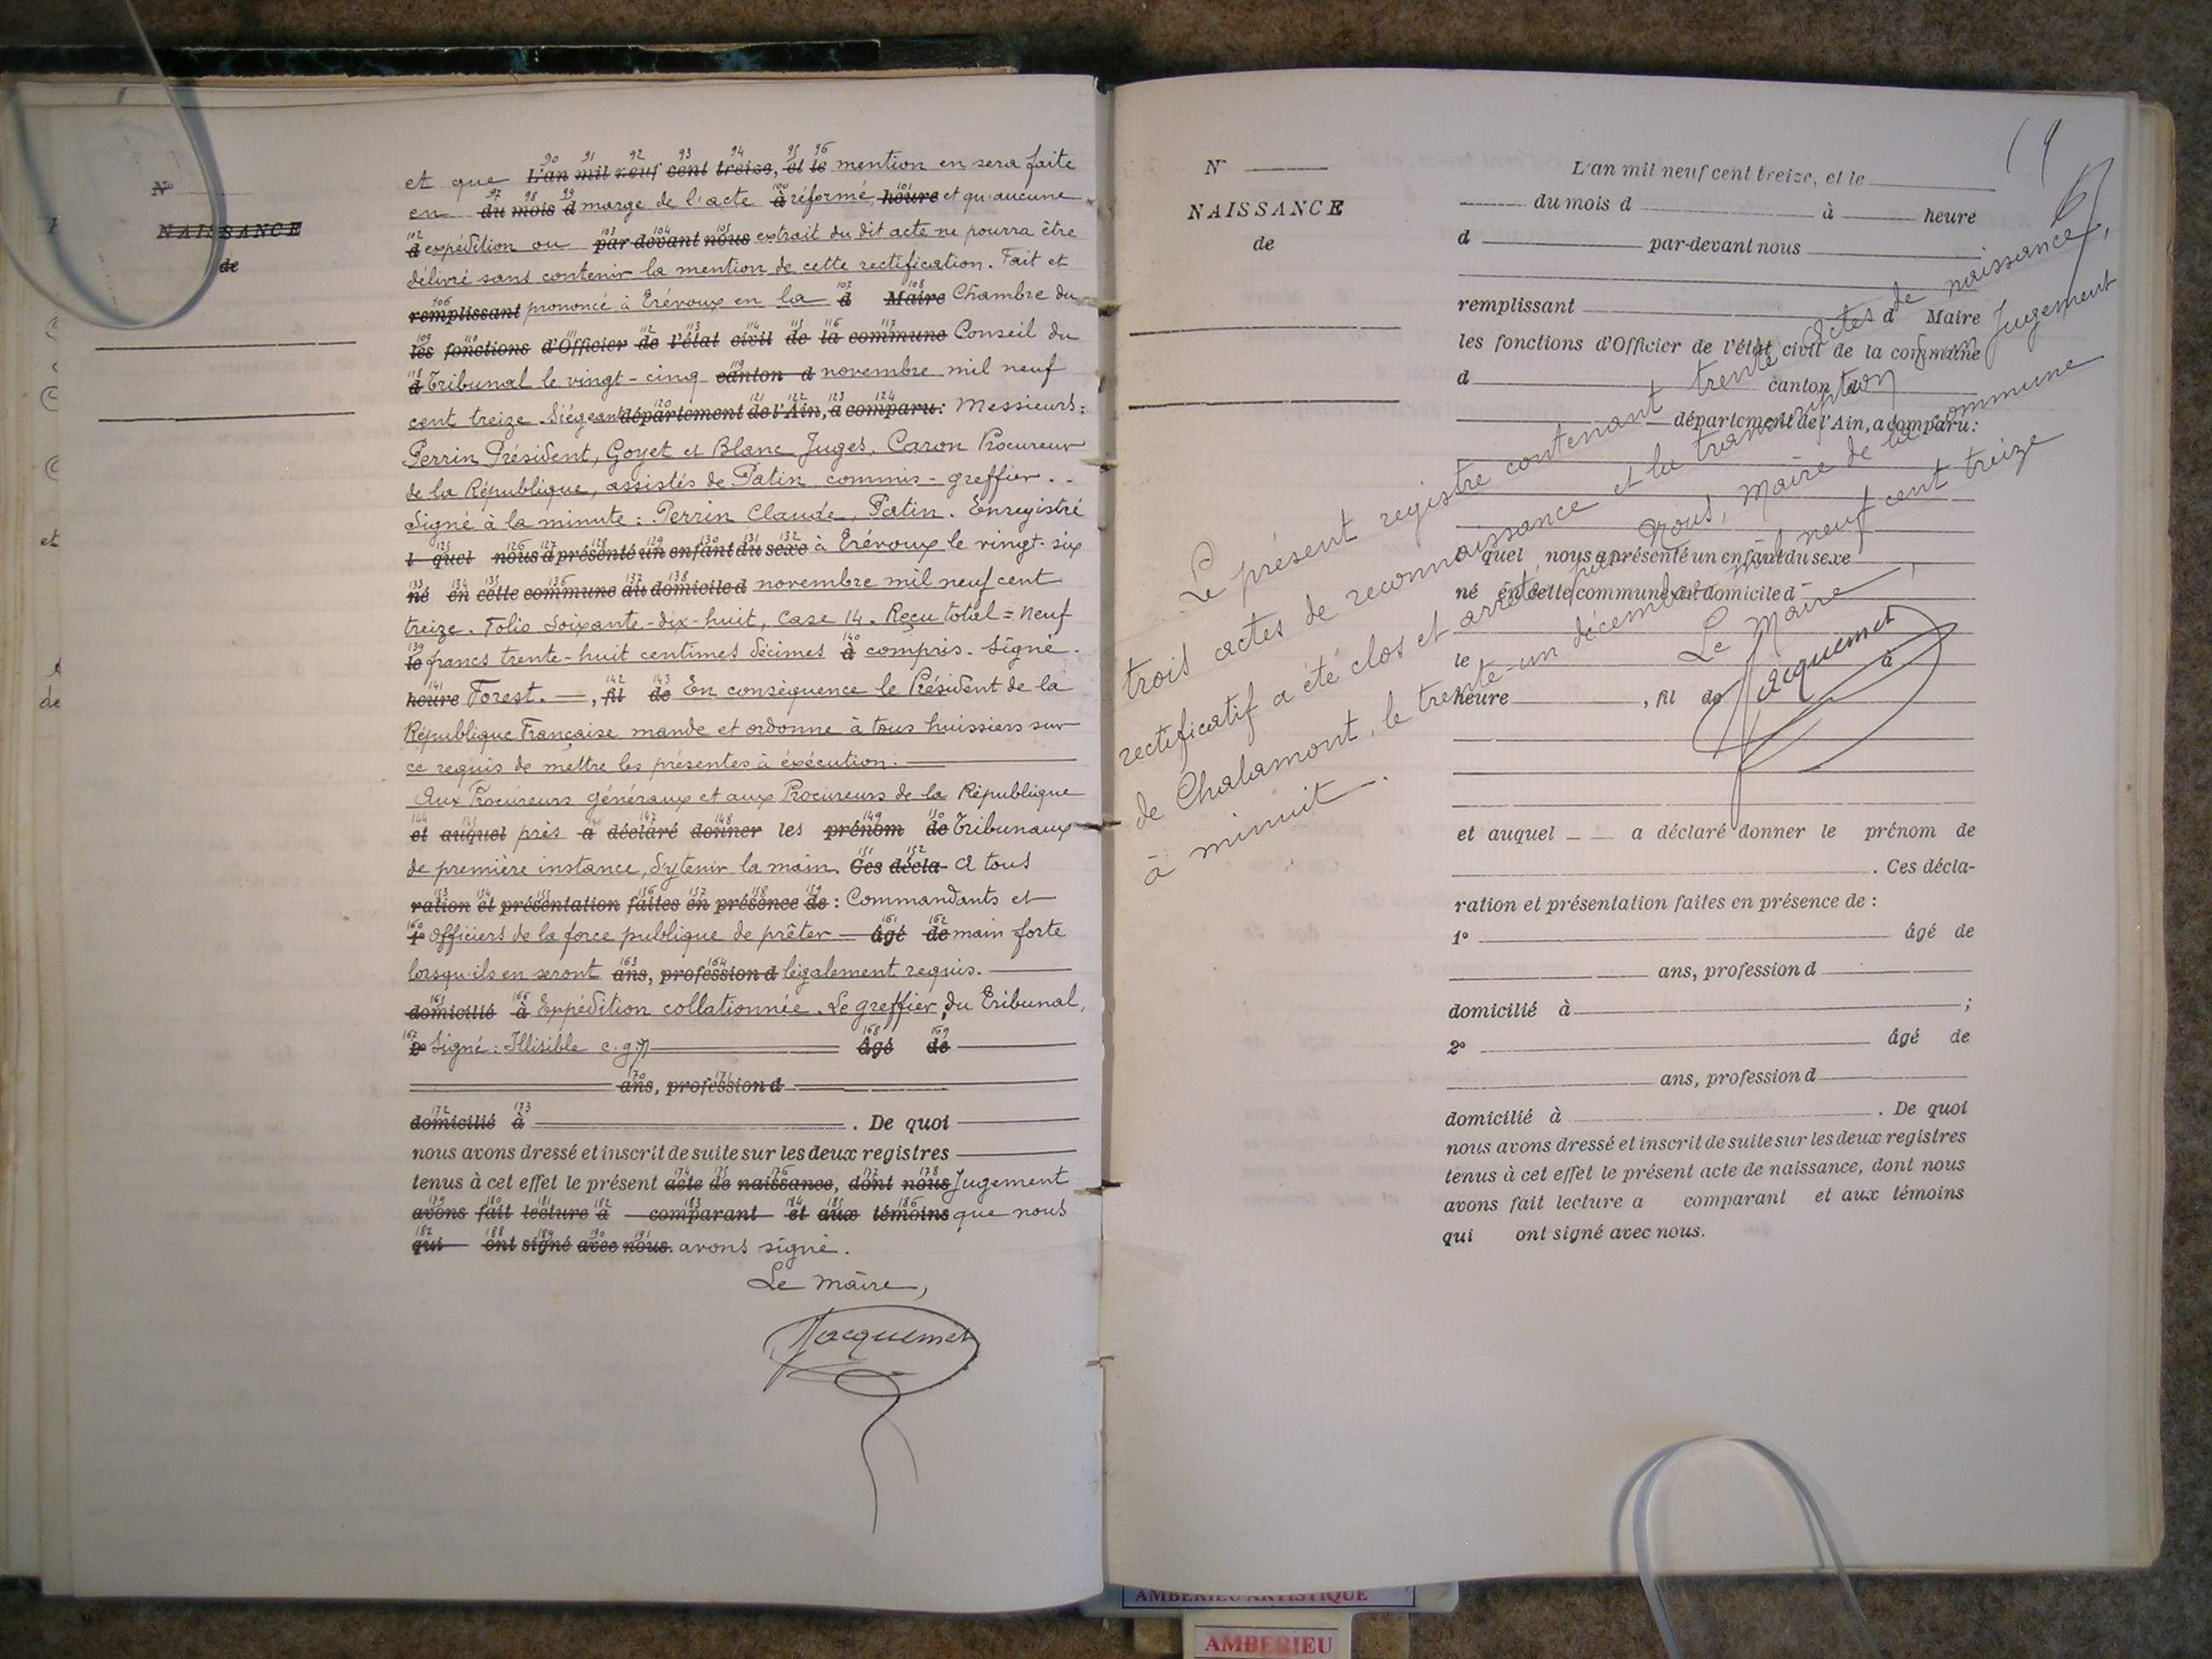 N°
NAISSANCE
de
et que L'an mil neuf cent treize, et le mention en sera faite
en du mois d marge de l'acte à réformé heure et qu'aucune
d expédition ou par devant nous extrait du dit acte ne pourra être
délivré sans contenir la mention de cette rectification. Fait et
remplissant prononcé à Trévoux en la d Maire Chambre du
les fonctions d'Officier de l'état civil de la commune Conseil du
d Tribunal le vingt-cinq canton d novembre mil neuf
cent treize. Siégeant département de l'Ain, a comparu: Messieurs:
Perrin Président, Goyet et Blanc Juges, Caron Procureur
de la République, assistés de Patin commis-greffier. -
Signé à la minute: Perrin Claude, Patin. Enregistré
l quel nous a présenté un enfant du sexe à Trévoux le vingt-six
né en cette commune au domicile d novembre mil neuf cent
treize. Folio soixante-dix-huit, case 14. Reçu total = neuf
le francs trente-huit centimes décimes à compris. Signé.
heure Forest. —, fil de En conséquence le Président de la
République Française mande et ordonne à tous huissiers sur
ce requis de mettre les présentes à éxécution.
Aux Procureurs généraux et aux Procureurs de la République
et auquel près a déclaré donner les prénom de Tribunaux
de première instance, d'y tenir la main. Ces décla- A tous
ration et présentation faites en présence de: Commandants et
1° officiers de la force publique de prêter — âgé de main forte
lorsqu'ils en seront ans, profession d légalement requis.
domicilié à Expédition collationnée. Le greffier du Tribunal,
2° Signé: Illisible c.g. âgé de
ans, profession d
domicilié à . De quoi
nous avons dressé et inscrit de suite sur les deux registres
tenus à cet effet le présent acte de naissance, dont nous Jugement
avons fait lecture à comparant et aux témoins que nous
qui ont signé avec nous. avons signé.
Le Maire,
Jacquemet
19
N°
NAISSANCE
de
L'an mil neuf cent treize, et le
du mois d à heure
d par-devant nous
remplissant d Maire
les fonctions d'Officier de l'état civil de la commune
d canton d
département de l'Ain, a comparu:
l quel nous a présenté un enfant du sexe
né en cette commune au domicile d
le à
heure , fil de
et auquel a déclaré donner le prénom de
. Ces décla-
ration et présentation faites en présence de :
1° âgé de
ans, profession d
domicilié à ;
2° âgé de
ans, profession d
domicilié à . De quoi
nous avons dressé et inscrit de suite sur les deux registres
tenus à cet effet le présent acte de naissance, dont nous
avons fait lecture a comparant et aux témoins
qui ont signé avec nous.
Le présent registre contenant trente actes de naissance,
trois actes de reconnaissance et la transcription d'un Jugement
rectificatif a été clos et arrêté par Nous, Maire de la commune
de Chalamont, le trente-un décembre mil neuf cent treize
à minuit.
Le Maire,
Jacquemet
AMBERIEU ARTISTIQUE
AMBERIEU